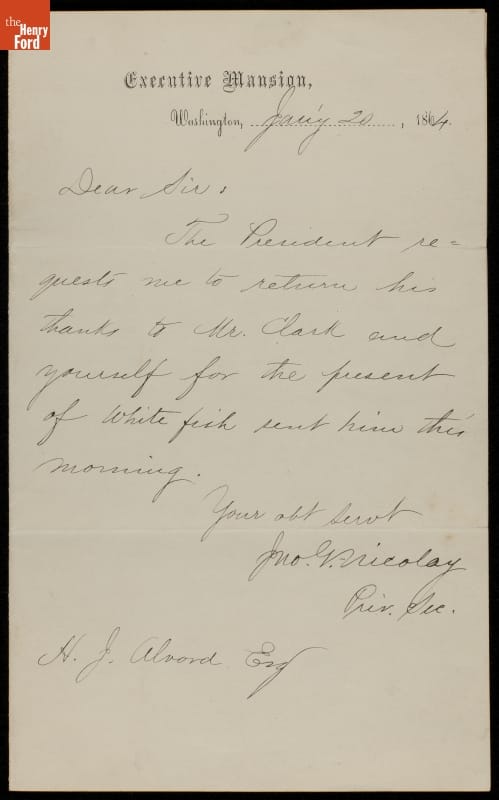 the
Henry
Ford
Executive Mansion,
Washington, Jan'y 20, 1864.
Dear Sir:
The President re=
quests me to return his
thanks to Mr. Clark and
yourself for the present
of White fish sent him this
morning.
Your obt servt
Jno. G. Nicolay
Priv. Sec.
H. J. Alvord Esq